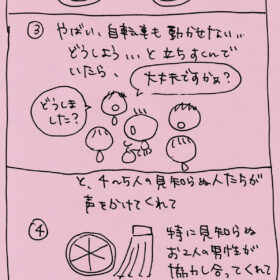 ③ やばい、自転車も動かせない‥
どうしよう‥と立ちすくんで
いたら、
大丈夫ですかぁ?
どうしま
した?
と、4〜5人の見知らぬ人たちが
声をかけてくれて
④ 特に見知らぬ
お2人の男性が
協力し合ってくれて